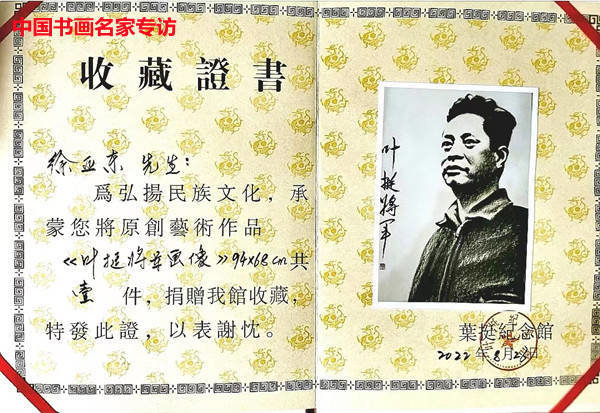 中国书画名家专访
收藏證書
徐亚东 先生:
爲弘揚民族文化，承
蒙您將原創藝術作品
《叶挺将军画像》94x68cm共
壹 件，捐贈我館收藏，
特發此證，以表謝忱。
叶挺将军
葉挺紀念館
2022年8月28日